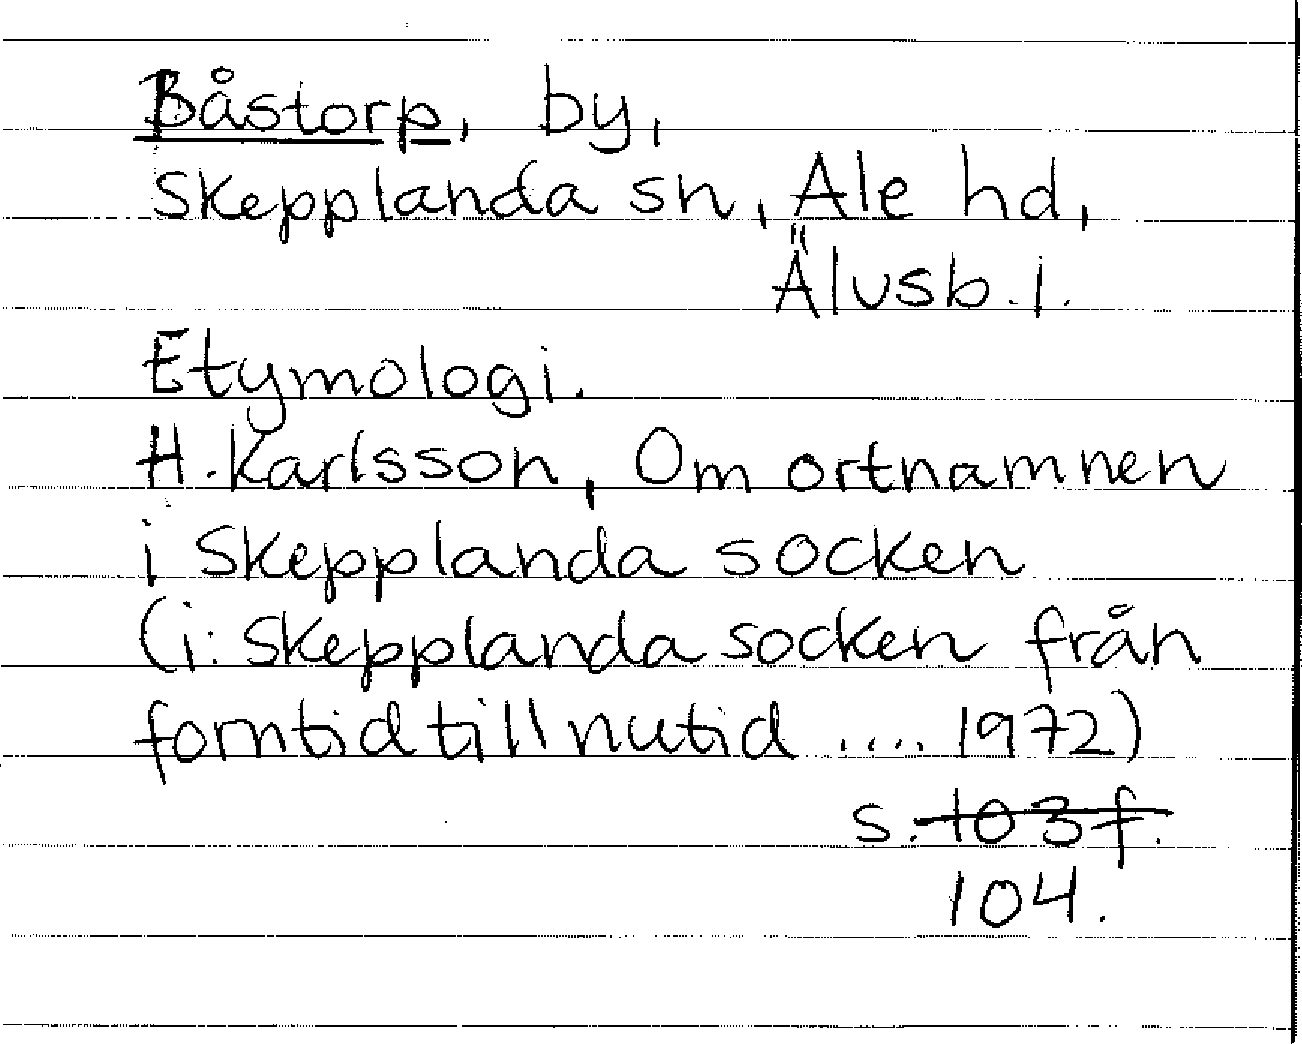 Båstorp, by,
Skepplanda sn, Ale hd,
Älvsb. l.
Etymologi.
H. Karlsson, Om ortnamnen
i Skepplanda socken
(i: Skepplanda socken från
forntid till nutid .... 1972)
s. 103 f.
104.